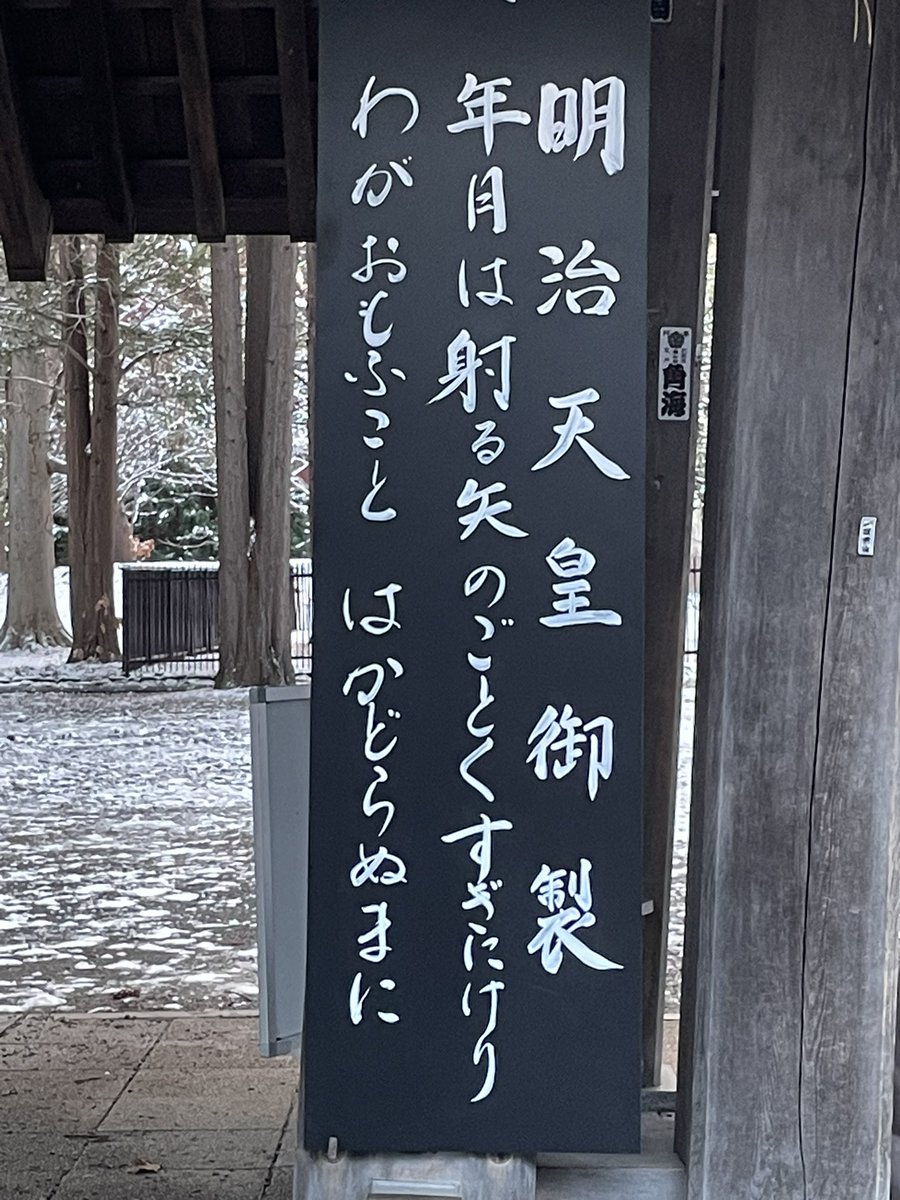 明治天皇御製
年月は射る矢のごとくすぎにけり
わがおもふこと はかどらぬまに